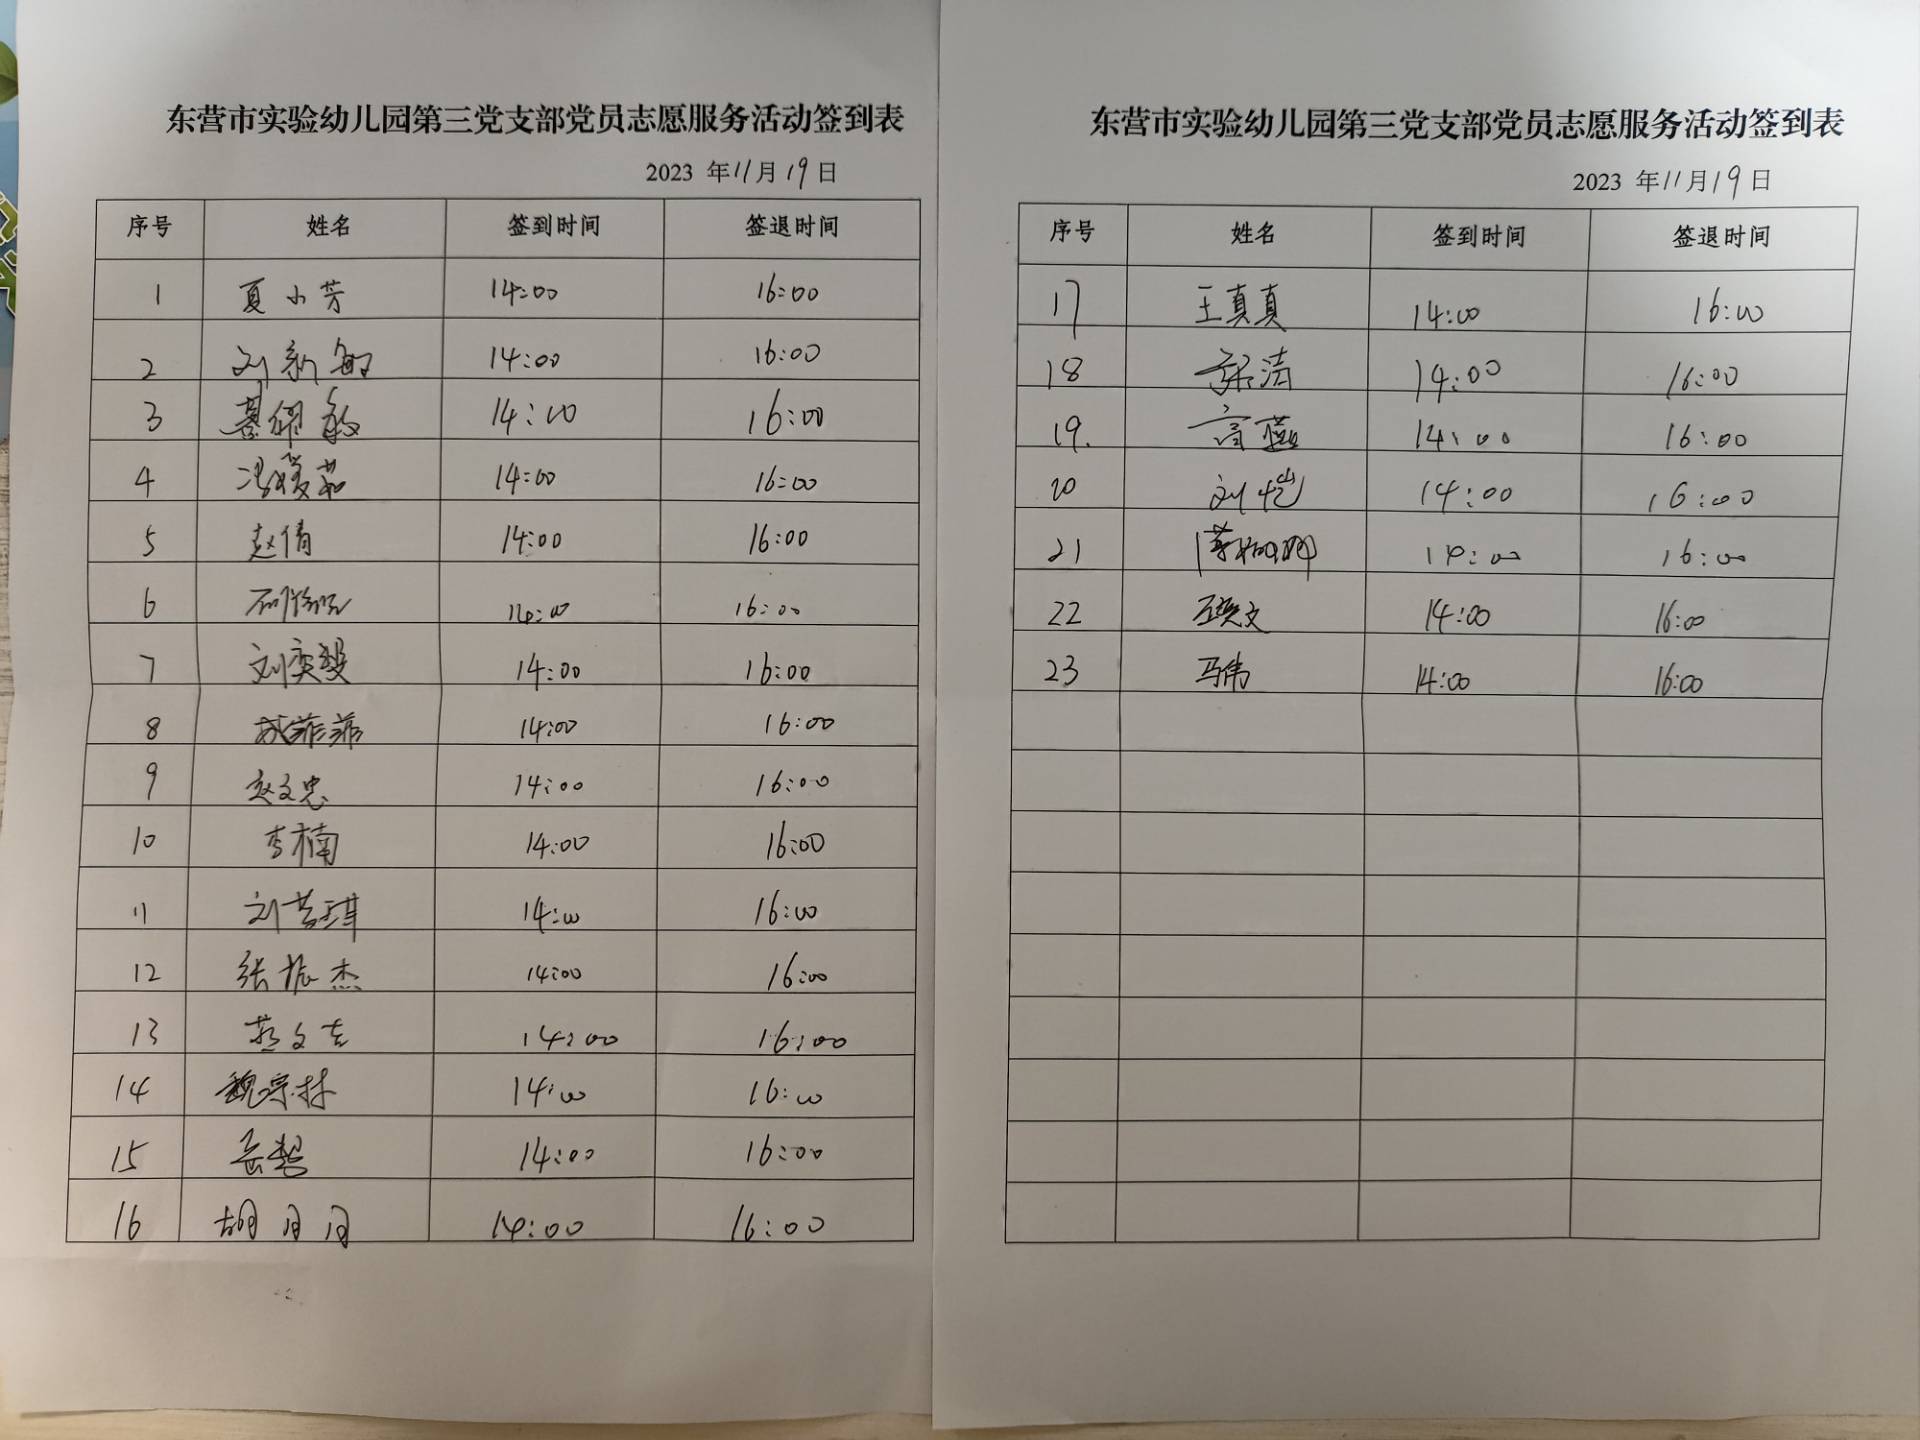 东营市实验幼儿园第三党支部党员志愿服务活动签到表
2023 年11月19日
序号 姓名 签到时间 签退时间
1 夏小芳 14:00 16:00
2 刘新敏 14:00 16:00
3 敏 14:00 16:00
4 冯媛茹 14:00 16:00
5 赵倩 14:00 16:00
6 14:00 16:00
7 刘奕 14:00 16:00
8 菲菲 14:00 16:00
9 赵文忠 14:00 16:00
10 李楠 14:00 16:00
11 刘芸琪 14:00 16:00
12 张振杰 14:00 16:00
13 燕文吉 14:00 16:00
14 魏宗林 14:00 16:00
15 岳 14:00 16:00
16 胡月月 14:00 16:00
东营市实验幼儿园第三党支部党员志愿服务活动签到表
2023 年11月19日
序号 姓名 签到时间 签退时间
17 王真真 14:00 16:00
18 清 14:00 16:00
19. 高燕 14:00 16:00
20 刘恺 14:00 16:00
21 14:00 16:00
22 文 14:00 16:00
23 马伟 14:00 16:00